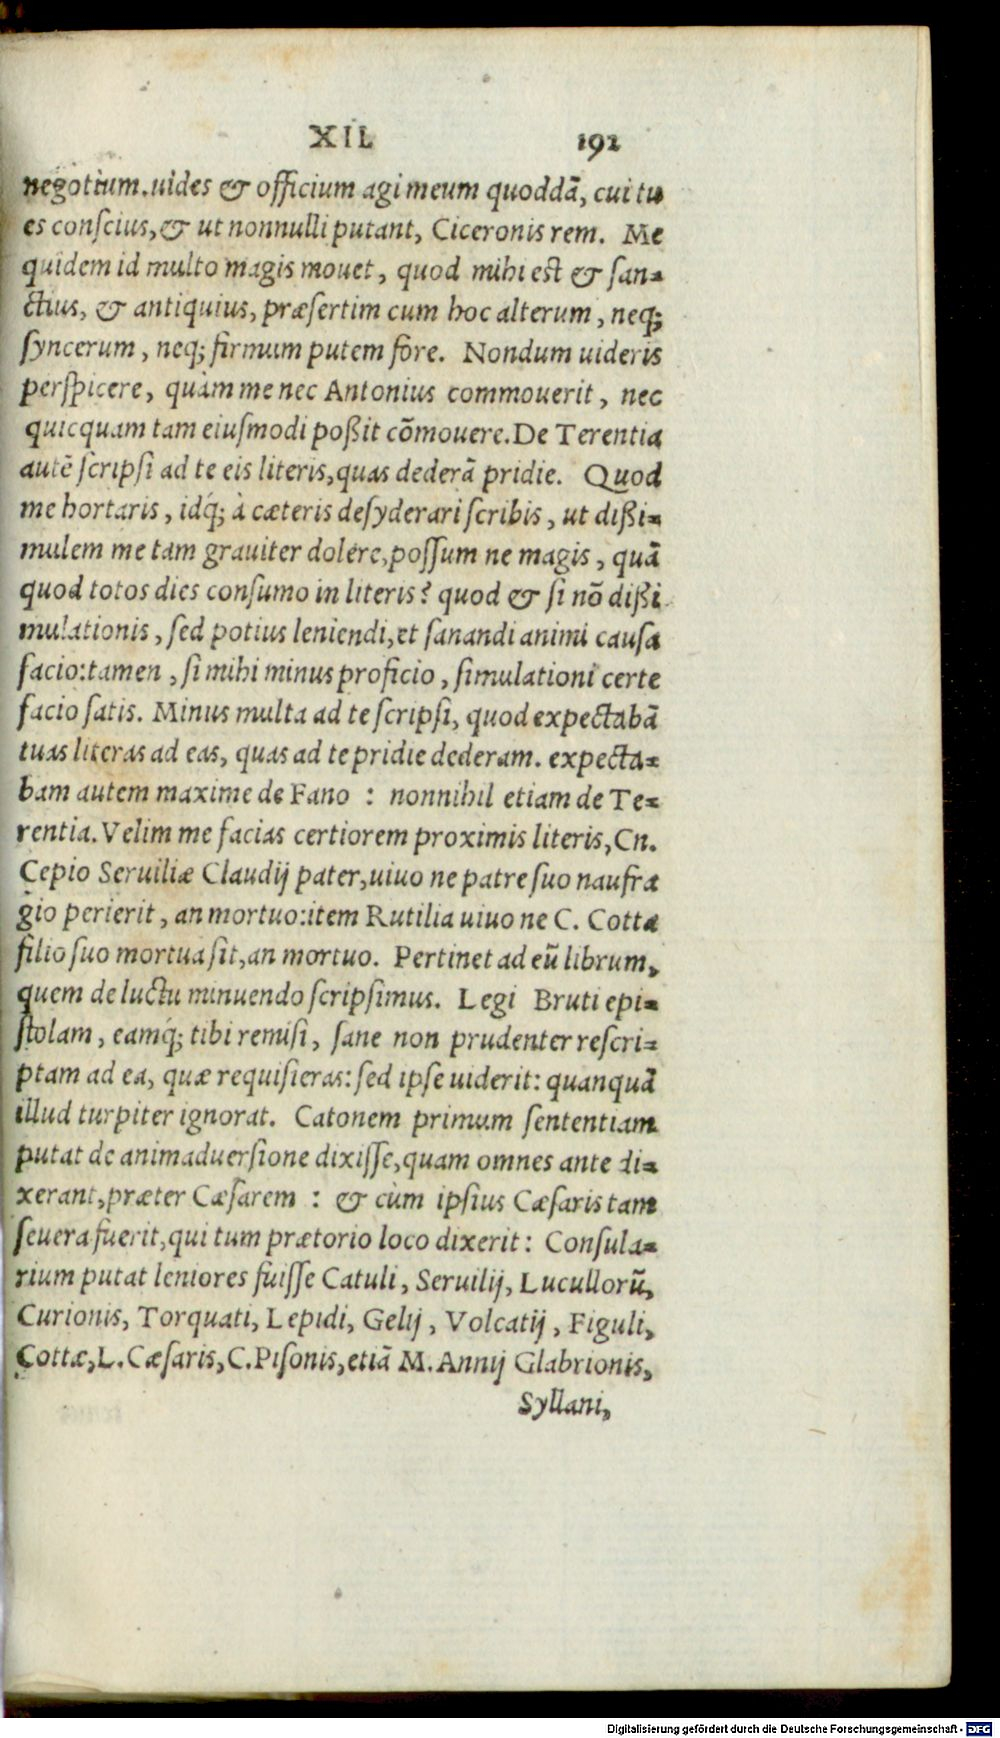 XII. 192
negotium. uides & officium agi meum quoddā, cui tu
es conscius, & ut nonnulli putant, Ciceronis rem. Me
quidem id multo magis mouet, quod mihi est & san=
ctius, & antiquius, præsertim cum hoc alterum, neq;
syncerum, neq; firmum putem fore. Nondum uideris
perspicere, quàm me nec Antonius commouerit, nec
quicquam tam eiusmodi poßit cōmouere. De Terentia
autē scripsi ad te eis literis, quas dederā pridie. Quod
me hortaris, idq́; à cæteris desyderari scribis, ut dißi=
mulem me tam grauiter dolere, possum ne magis, quā
quod totos dies consumo in literis? quod & si nō dißi
mulationis, sed potius leniendi, et sanandi animi causa
facio: tamen, si mihi minus proficio, simulationi certe
facio satis. Minus multa ad te scripsi, quod expectabā
tuas literas ad eas, quas ad te pridie dederam. expecta=
bam autem maxime de Fano : nonnihil etiam de Te=
rentia. Velim me facias certiorem proximis literis, Cn.
Cepio Seruiliæ Claudij pater, uiuo ne patre suo naufra
gio perierit, an mortuo: item Rutilia uiuo ne C. Cotta
filio suo mortua sit, an mortuo. Pertinet ad eū librum,
quem de luctu minuendo scripsimus. Legi Bruti epi=
stolam, eamq́; tibi remisi, sane non prudenter rescri=
ptam ad ea, quæ requisieras: sed ipse uiderit: quanquā
illud turpiter ignorat. Catonem primum sententiam
putat de animaduersione dixisse, quam omnes ante di=
xerant, præter Cæsarem : & cùm ipsius Cæsaris tam
seuera fuerit, qui tum prætorio loco dixerit: Consula=
rium putat leniores fuisse Catuli, Seruilij, Lucullorū,
Curionis, Torquati, Lepidi, Gelij, Volcatij, Figuli,
Cottæ, L. Cæsaris, C. Pisonis, etiā M. Annij Glabrionis,
Syllani,
Digitalisierung gefördert durch die Deutsche Forschungsgemeinschaft - DFG